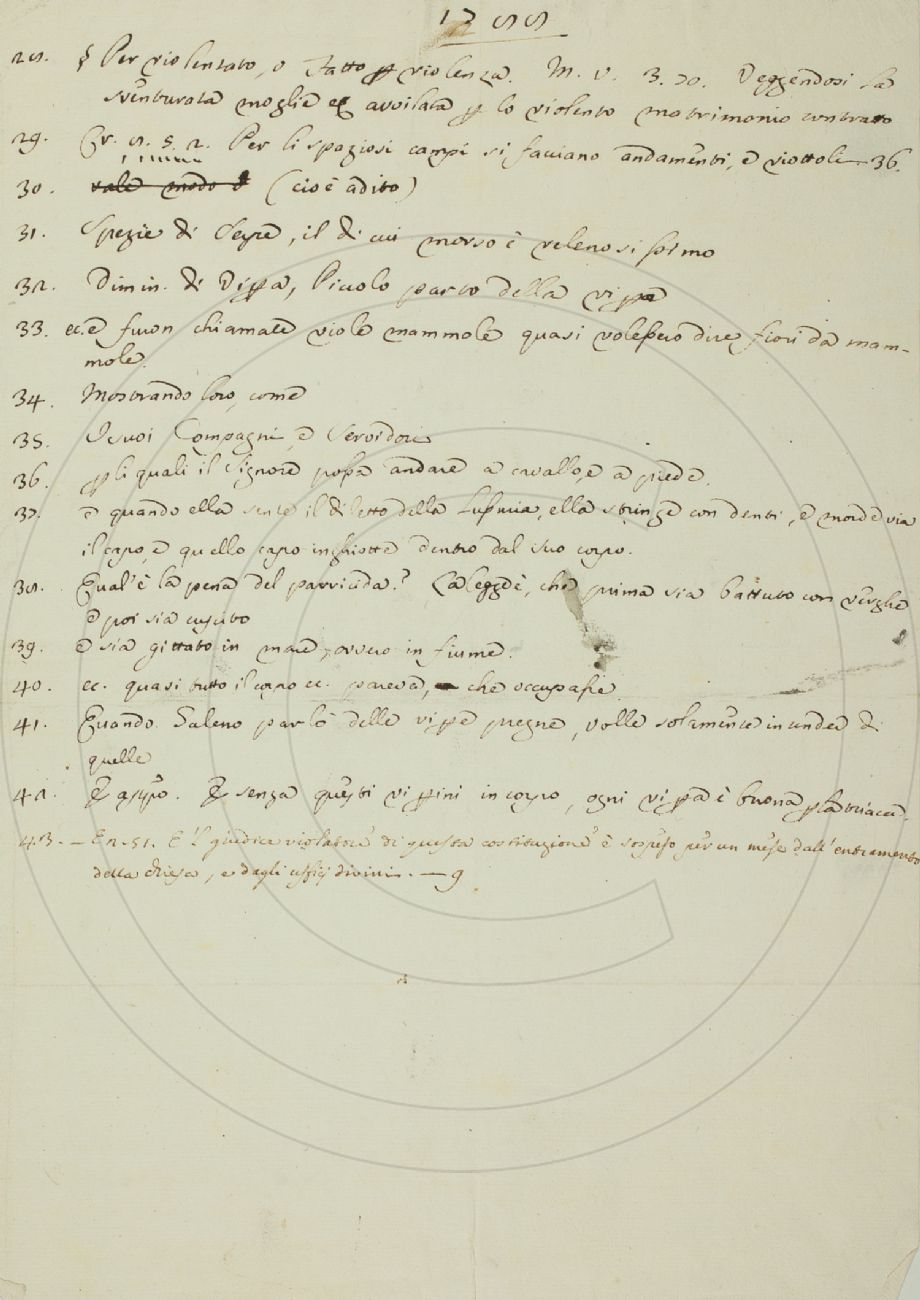 1788
28. § Per violentato, o Fatto p violenza. M. V. 3. 70. Veggendosi la
sventurata moglie avvilata p lo violento matrimonio contratto
29. Cr. 8. 5. 2. Per li spaziosi campi si facciano andamenti, e viottole 36.
30. vale modo (cioè adito)
31. Spezie di Serpe, il di cui morso è velenosissimo
32. Dimin. di Vippa, Piccolo parto della vippa
33. ec. e furon chiamate viole mammole quasi volessero dire fiori da mam-
mole.
34. Mostrando loro, come
35. I suoi Compagni, e Servidori
36. p li quali il Signore possa andare a cavallo, e a piede.
37. e quando ella sente il diletto della Lussuria, ella stringe con denti, e morde via
il capo, e quello capo inghiotte dentro dal suo corpo.
38. Qual'è la pena del parricida? La legge è, che prima sia battuto con verghe
e poi sia cuscito
39. e sia gittato in mare, ovvero in fiume.
40. ec. quasi tutto il corpo ec. pareva, che occupasse
41. Quando Galeno parlò delle vipe pregne, volle solamente intendere di
quelle
42. E appo. E senza questi vippini in corpo, ogni vippa è buona p la triaca.
43. – E n. 51. E 'l giudice violatore di questa costituzione è sospeso per un mese dall'entramento
della chiesa, e dagli ufficj divini. — 9